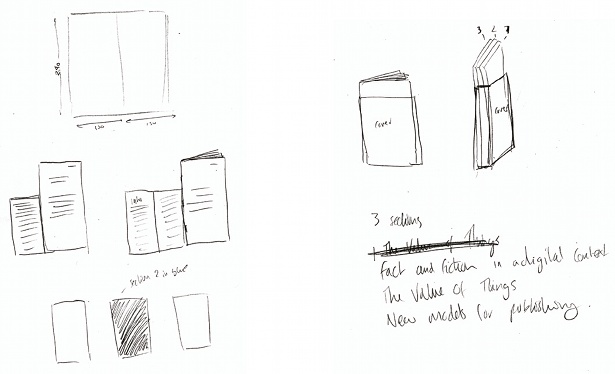 130
section 2 in blue
3 2 1
Cover
Cover
3 sections
The Value of Things
Fact and Fiction in a digital context
The Value Of Things
New models for publishing.